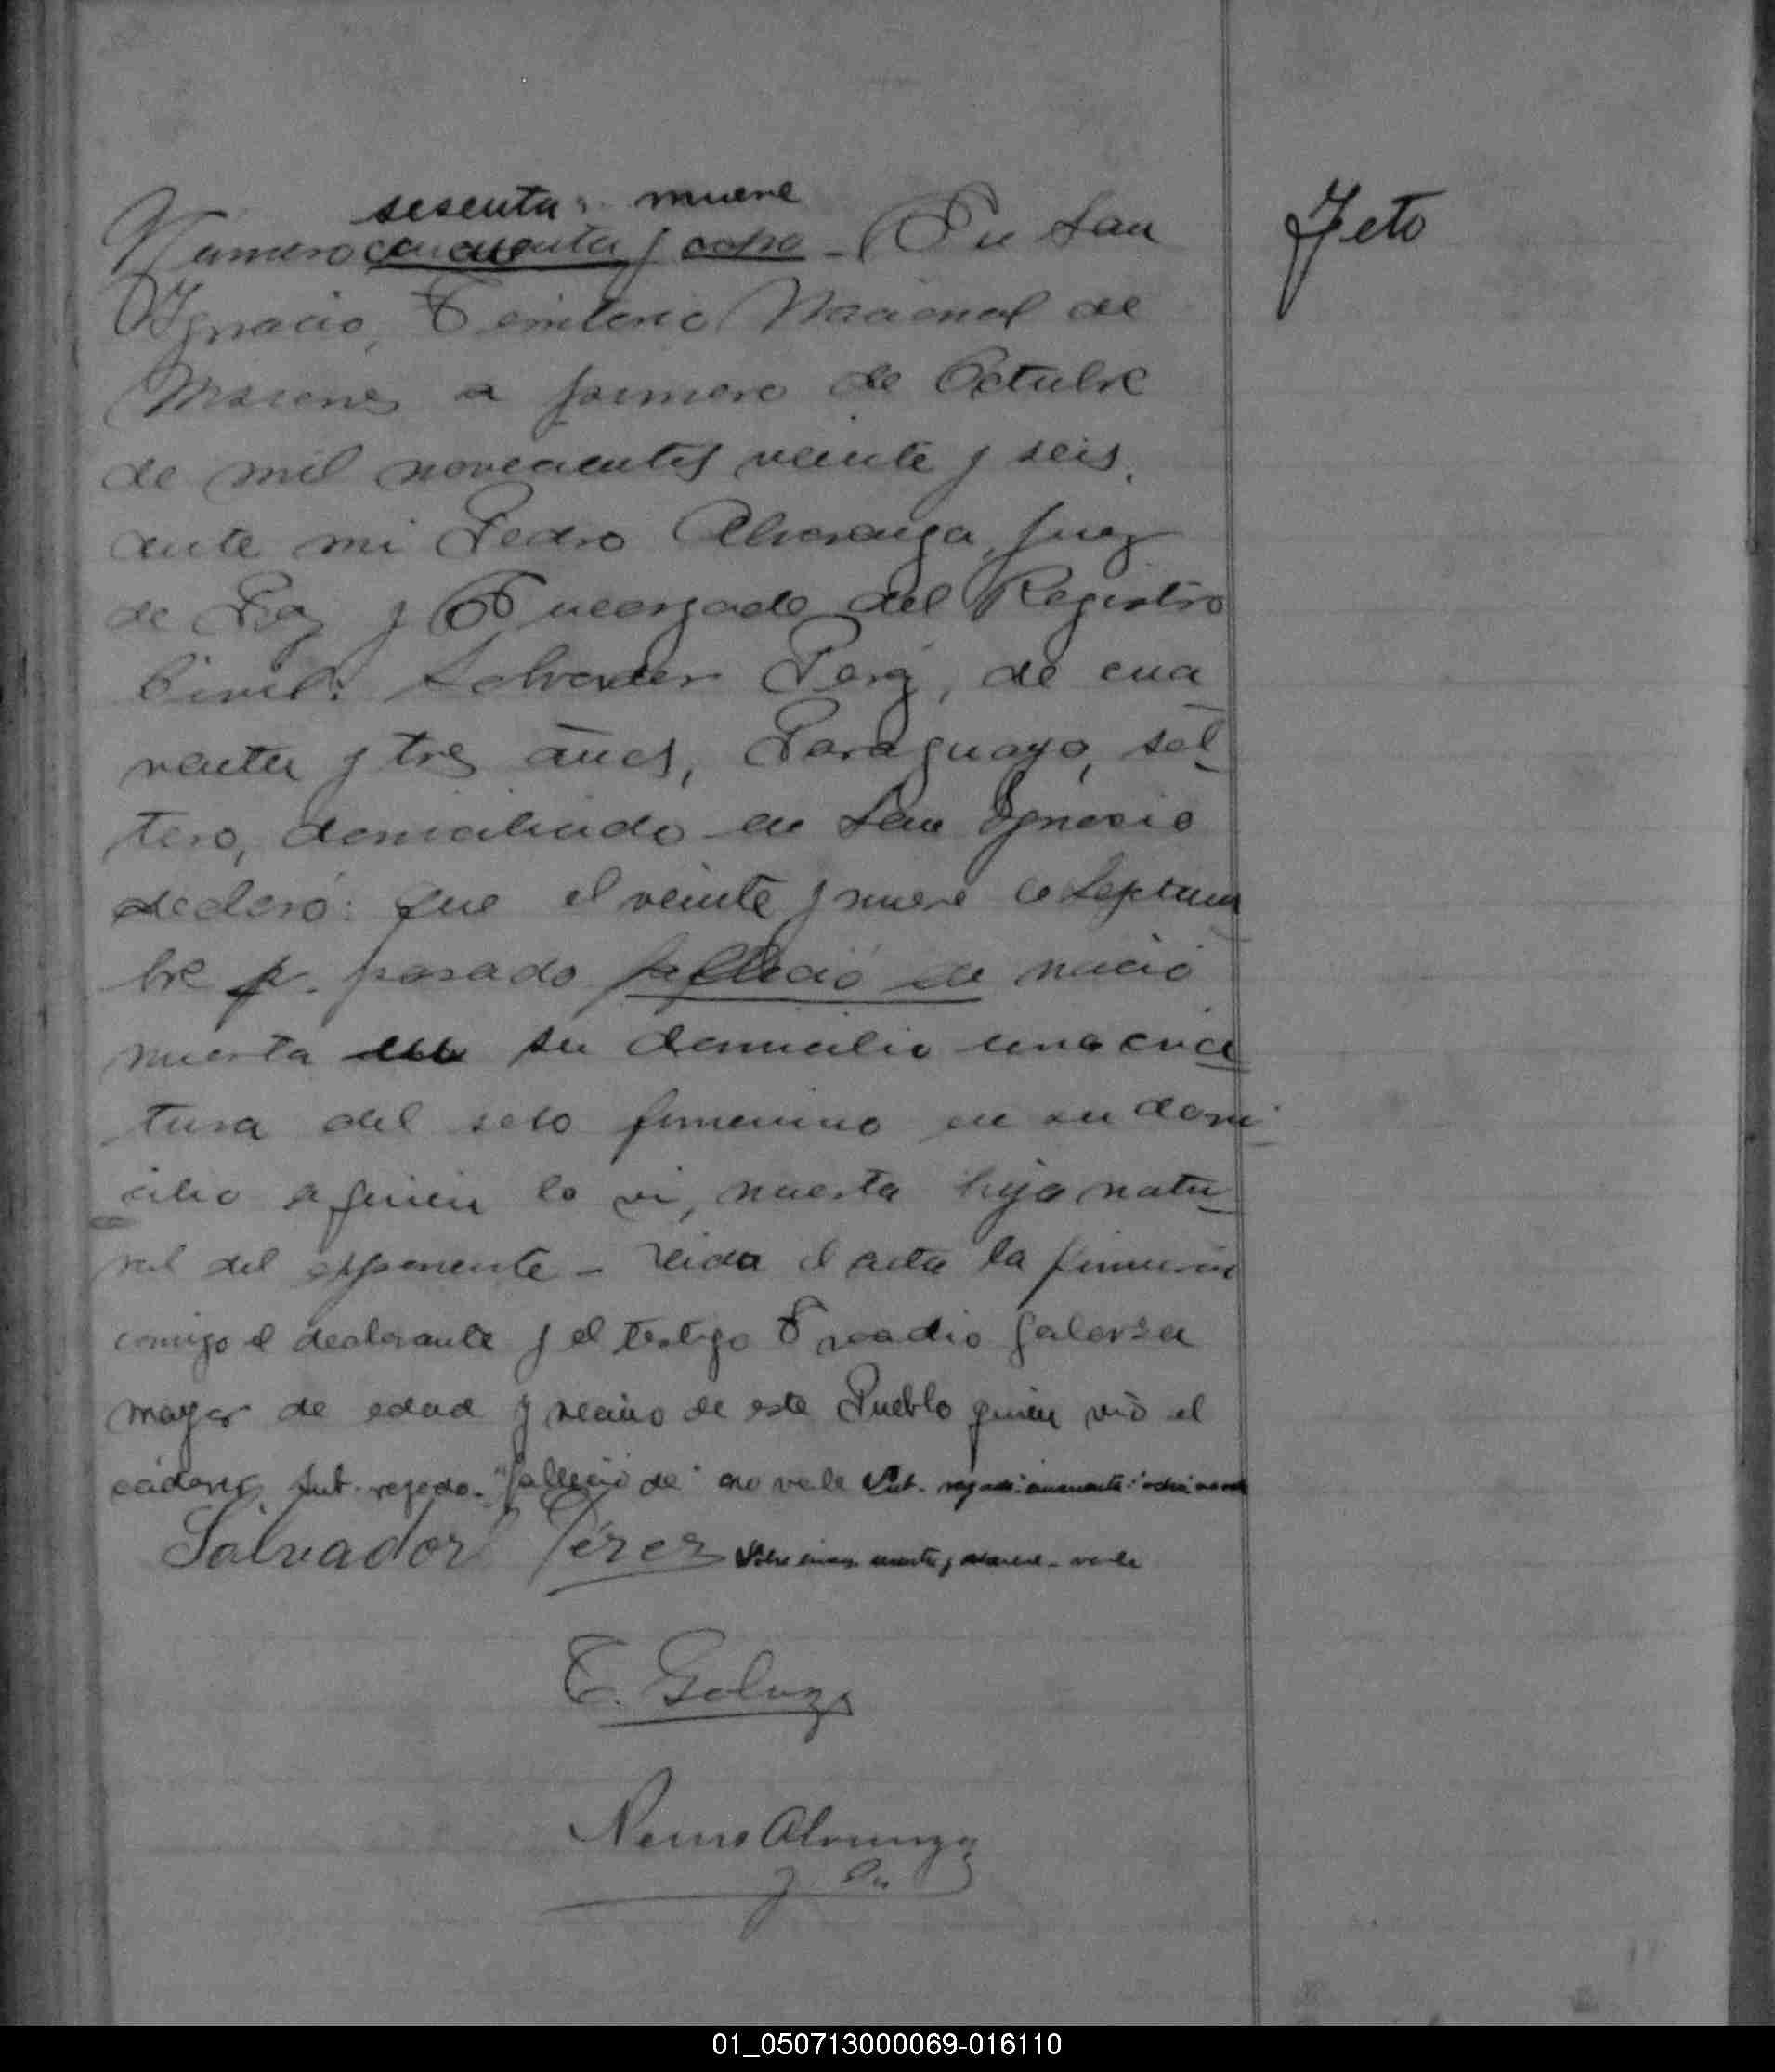 sesenta nueve
Numero cincuenta y ocho - En San
Feto
Ignacio, Territorio Nacional de
Misiones a primero de Octubre
de mil novecientos veinte y seis,
ante mi Pedro Alvarenga, Juez
de Paz y Encargado del Registro
Civil: Salvador Perez, de cua
renta y tres años, Paraguayo, sol
tero, domiciliado en San Ignacio
declaró: que el veinte y nueve de Septiem
bre p. pasado falleció de nació
muerta en su domicilio una cria
tura del sexo femenino en su domi
cilio a quien lo vi, muerta hija natu
ral del exponente - Leida el acta la firmaron
comigo el declarante y el testigo Galarza
mayor de edad y vecino de este Pueblo quien vió el
cadaver. Ent. regado. "falleció de" no vale Ent. regado
Salvador Pérez vale
Galarza
Alvarenga
01_050713000069-016110